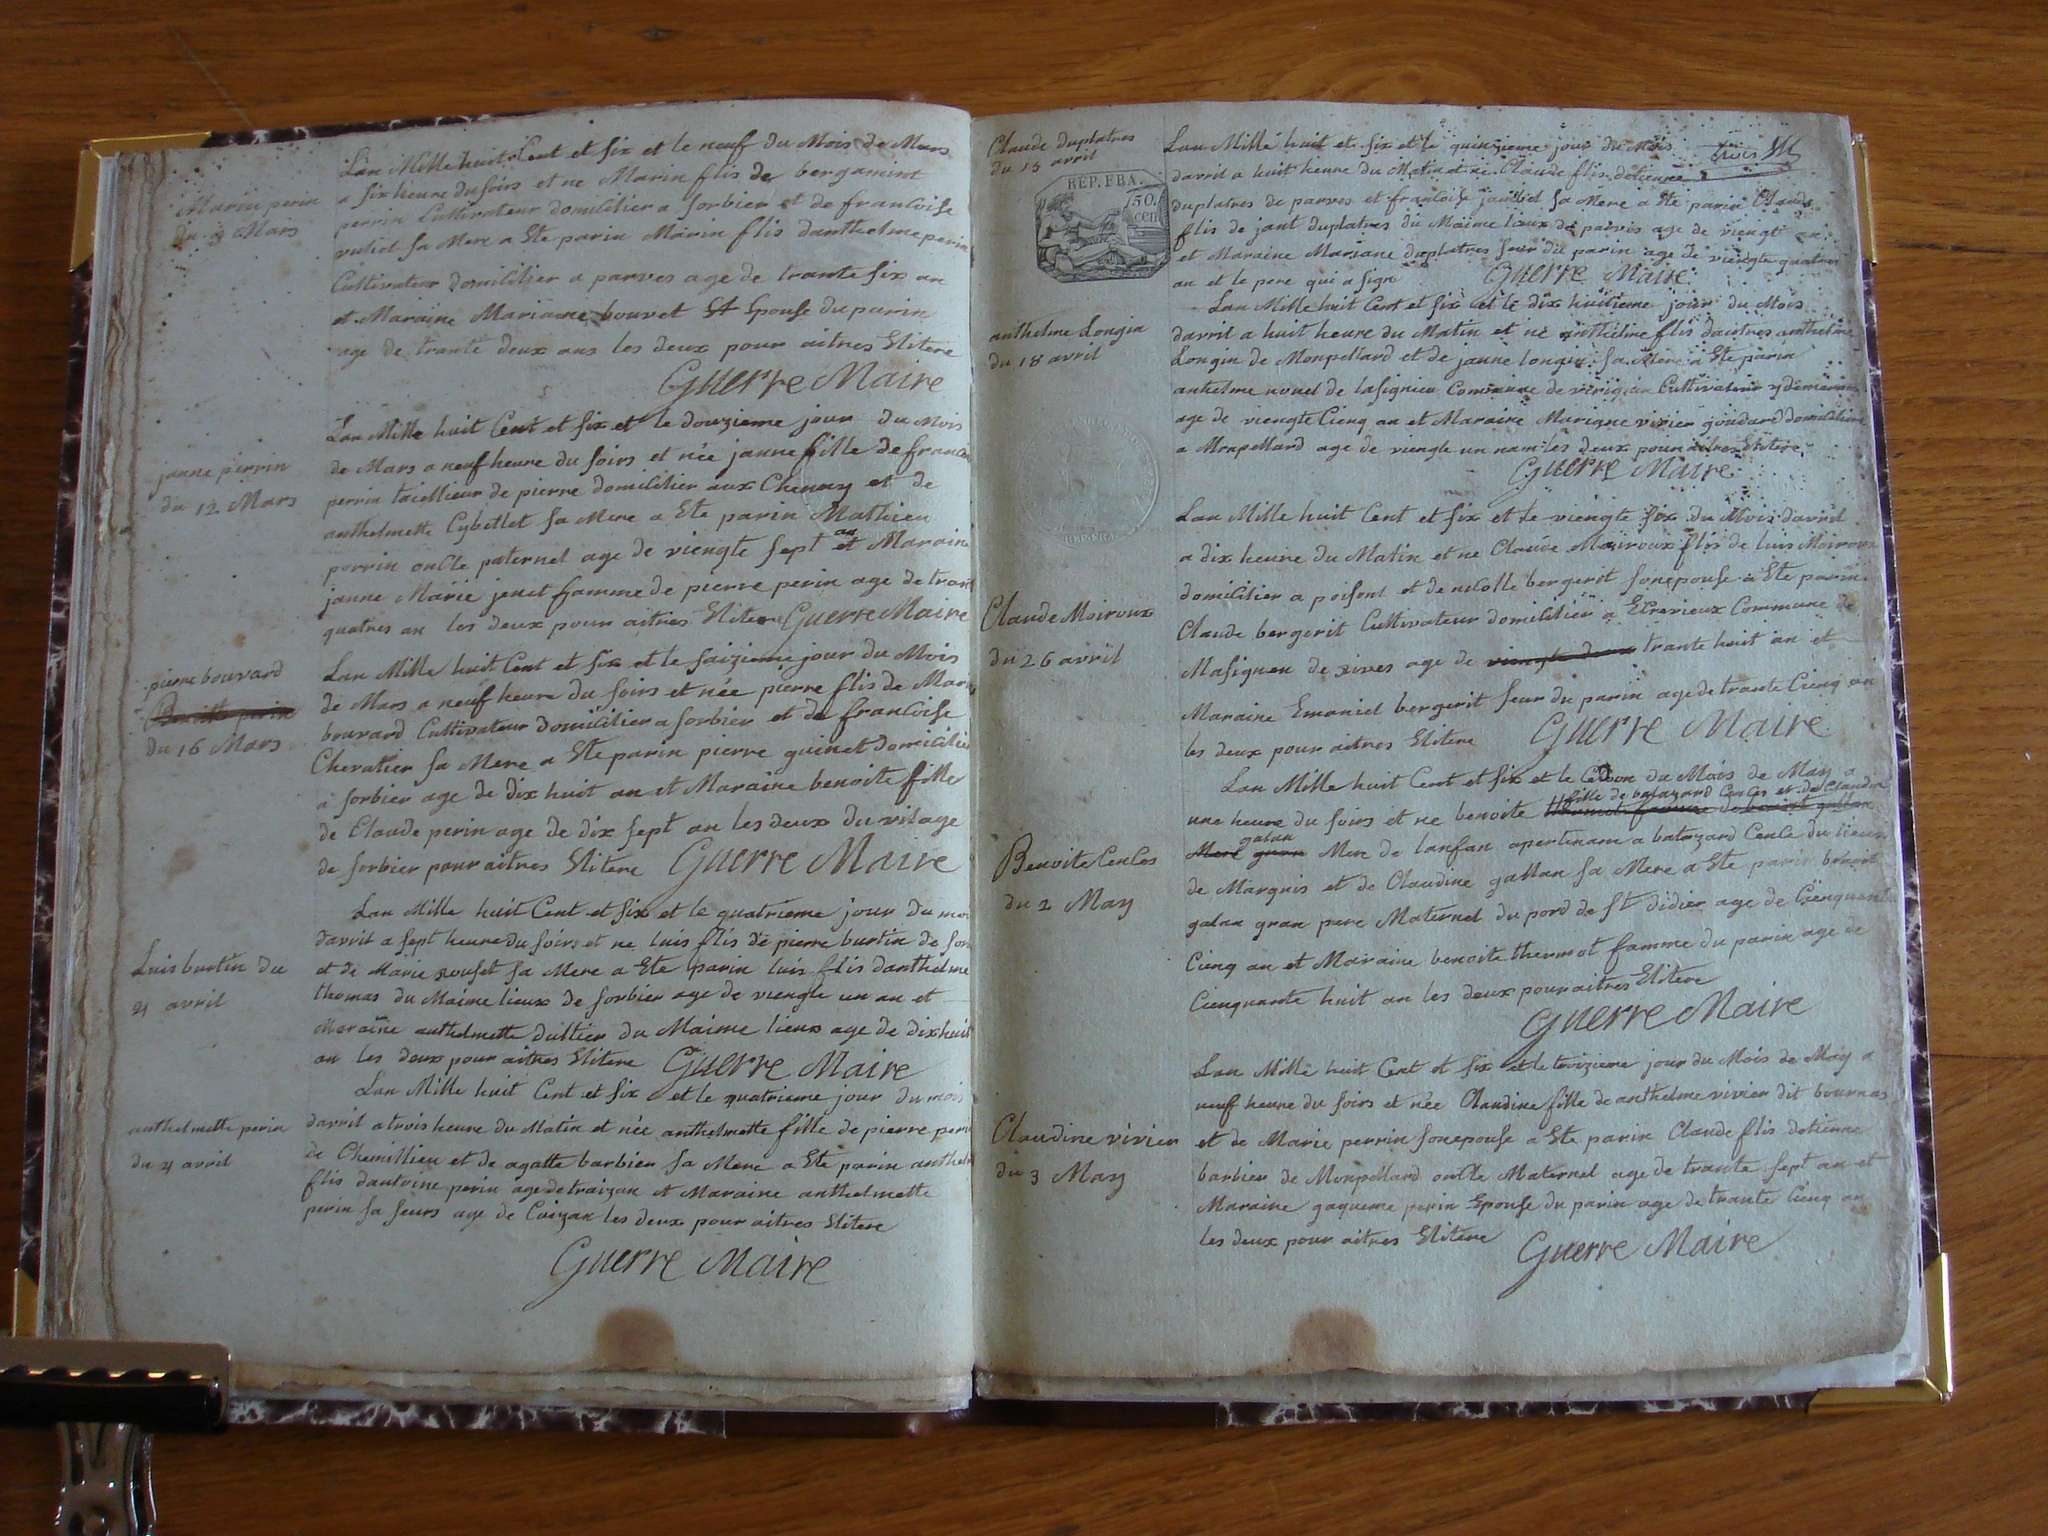 Marin perin
du 9 Mars
Lan Mille huit Cent et six et le neuf du Mois de Mars
a six heure du soirs et ne Marin flis de bergamint
perrin Cultivateur domicilier a sorbier et de francoise
sa Mere a Ete parin Marin flis danthelme perin
Cultivateur domicilier a parves age de trante six an
et Maraine Mariane bouvet Epouse du parin
age de trante deux ans les deux pour aitres Elitere
Guerre Maire
janne perrin
du 12 Mars
Lan Mille huit Cent et six et le douzieme jour du Mois
de Mars a neuf heure du soirs et née janne fille de francoi
perrin taiellieur de pierre domicilier aux Chemay et de
anthelmette Cybellet sa Mere a Ete parin Mathieu
perrin oncle paternel age de viengte sept an et Maraine
janne Marie jenet famme de pierre perin age de trant
quatres an les deux pour aitres Elitere Guerre Maire
pierre bouvard
Benoitte perin
du 16 Mars
Lan Mille huit Cent et six et le saizieme jour du Mois
de Mars a neuf heure du soirs et née pierre flis de Mar
bouvard Cultivateur domicilier a sorbier et de francoise
Chevalier sa Mere a Ete parin pierre guinet domicilie
a sorbier age de dix huit an et Maraine benoite fille
de Claude perin age de dix sept an les deux du vilage
de sorbier pour aitres Elitere Guerre Maire
Luis burtin du
4 avril
Lan Mille huit Cent et six et le quatrieme jour du moi
davril a sept heure du soirs et ne luis flis de pierre burtin de sor
et de Marie rouset sa Mere a Ete parin luis flis danthelme
thomas du Maime lieux de sorbier age de viengte un an et
Maraine anthelmette dultier du Maime lieux age de dix huit
an les deux pour aitres Elitere Guerre Maire
anthelmette perin
du 4 avril
Lan Mille huit Cent et six et le quatrieme jour du mois
davril a trois heure du Matin et née anthelmette fille de pierre peri
de Chemillieu et de agatte barbier sa Mere a Ete parin anthel
flis dantoine perin age de traizan et Maraine anthelmette
perin sa seurs age de Caizan les deux pour aitres Elitere
Guerre Maire
Claude duplatres
du 15 avril
REP. FRA.
50.
cen
Lan Mille huit et six et le quinzieme jour du Mois
davril a huit heure du Matin et ne Claude flis detienne
duplatres de parves et francoise jantet sa Mere a Ete parin Claude
flis de jant duplatres du Maime lieux de parves age de viengt an
et Maraine Mariane duplatres seur du parin age de viengte quatres
an et le pere qui a sign Guerre Maire
anthelme Longin
du 18 avril
Lan Mille huit Cent et six et le dix huitieme jour du Mois
davril a huit heure du Matin et né anthelme flis dautres anthelme
Longin de Monpellard et de janne longin sa Mere a Ete parin
anthelme de lasignieu Commune de Cultivateur y demeurant
age de viengte Cienq an et Maraine Marigne vivier goudard domiciliere
a Monpellard age de viengte un nan les deux pour aitres Elitere
Guerre Maire
Claude Moiroux
du 26 avril
Lan Mille huit Cent et six et le viengte six du Mois davril
a dix heure du Matin et ne Claude Moiroux flis de luis Moiroux
domicilier a poisont et de nicolle bergerit sonepouse a Ete parin
Claude bergerit Cultivateur domicilier a Ecrevieux Commune de
Masignen de rives age de viengte deux trante huit an et
Maraine Emoniel bergerit seur du parin age de trante Cienq an
les deux pour aitres Elitere Guerre Maire
Benoite CenCes
du 2 May
Lan Mille huit Cent et six et le du Mois de May a
fille de balazard CenCes et de Claudin
une heure du soirs et ne benoite
galan
Mere Mere de lanfan apertenant a balazard CenCe du lieux
de Margnis et de Claudine gallan sa Mere a Ete parin benoit
galan gran pere Maternel du pord de st didier age de Cienquante
Cienq an et Maraine benoite thermot famme du parin age de
Cienquante huit an les deux pour aitres Elitere
Guerre Maire
Claudine vivier
du 3 May
Lan Mille huit Cent et six et le troizieme jour du Mois de May a
neuf heure du soirs et née Claudine fille de anthelme vivier dit bournas
et de Marie perrin sonepouse a Ete parin Claude flis detienne
barbier de Monpellard oncle Maternel age de trante sept an et
Maraine gaqueme perin Epouse du parin age de trante Cienq an
les deux pour aitres Elitere Guerre Maire